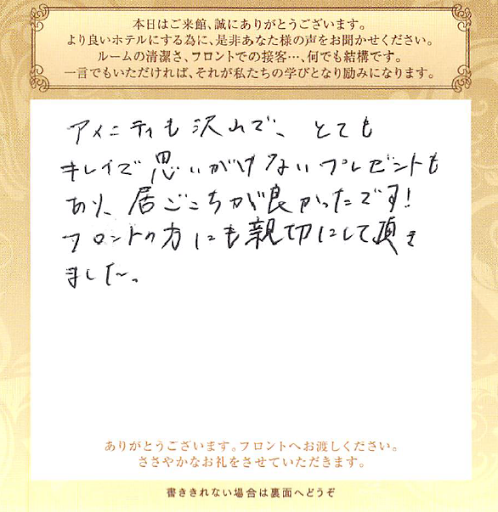 本日はご来館、誠にありがとうございます。
より良いホテルにする為に、是非あなた様の声をお聞かせください。
ルームの清潔さ、フロントでの接客…、何でも結構です。
一言でもいただければ、それが私たちの学びとなり励みになります。
アメニティも沢山で、とても
キレイで思いがけないプレゼントも
あり、居ごこちが良かったです!
フロントの方にも親切にして頂き
ました。
ありがとうございます。フロントへお渡しください。
ささやかなお礼をさせていただきます。
書ききれない場合は裏面へどうぞ